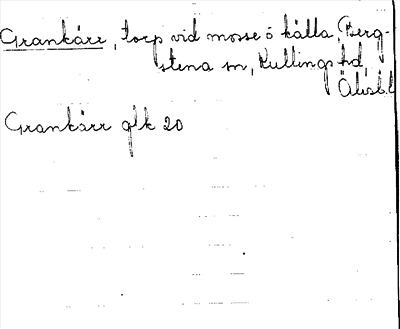 Grankärr, torp vid mosse ö källa, Berg-
stena sn, Kullings hd,
Älvsb.l.
Grankärr glk 20